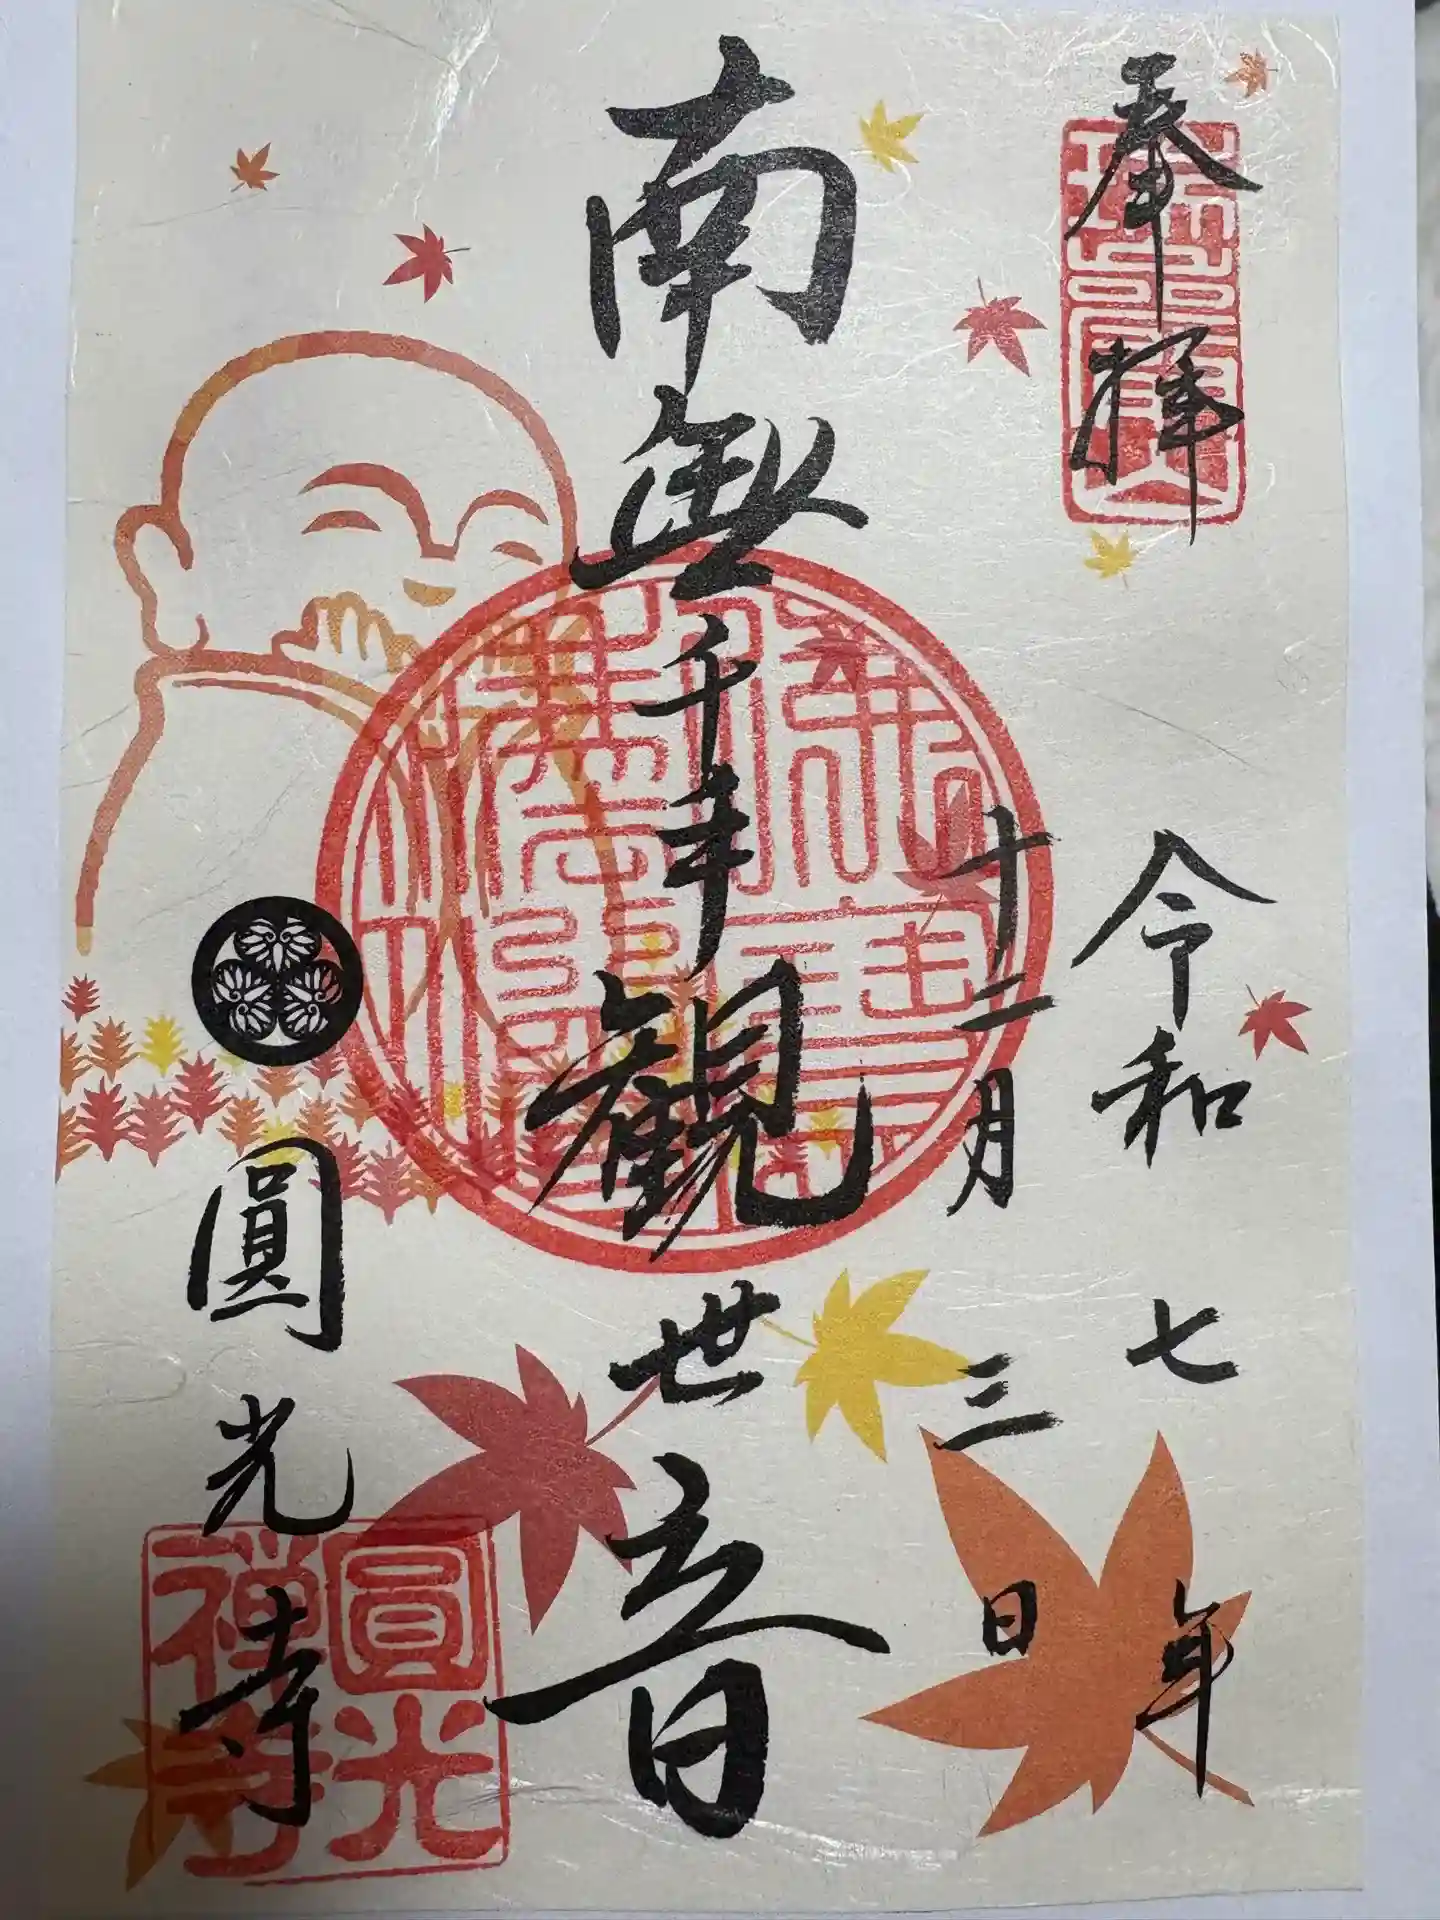 奉拝
令和七年
十二月三日
南無千手観世音
圓光寺
佛法僧寶
圓光禅寺